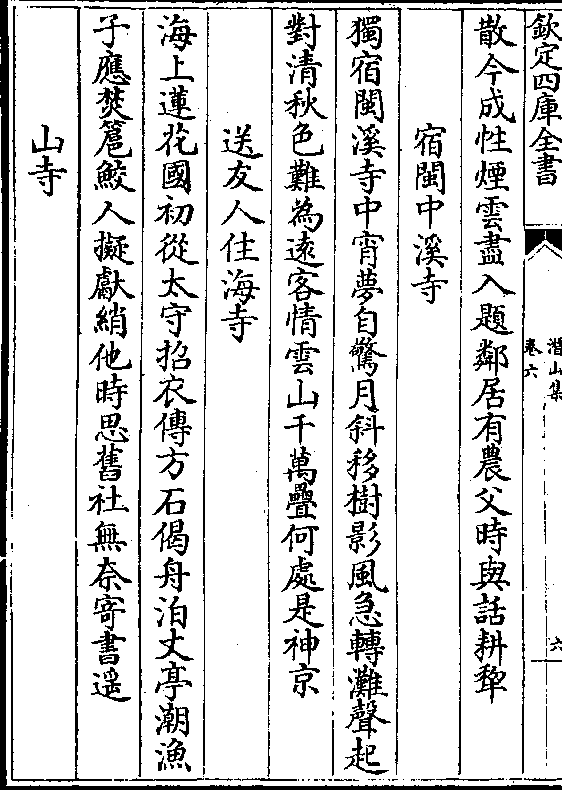 欽定四庫全書
潛山集
卷六
六
散今成性煙雲盡入題鄰居有農父時與話耕犂
宿閩中溪寺
獨宿閩溪寺中宵夢自驚月斜移樹影風急轉灘聲起
對清秋色難為遠客情雲山千萬疊何處是神京
送友人住海寺
海上蓮花國初從太守招衣傳方石偈舟泊丈亭潮漁
子應焚篦鮫人擬獻綃他時思舊社無奈寄書遥
山寺